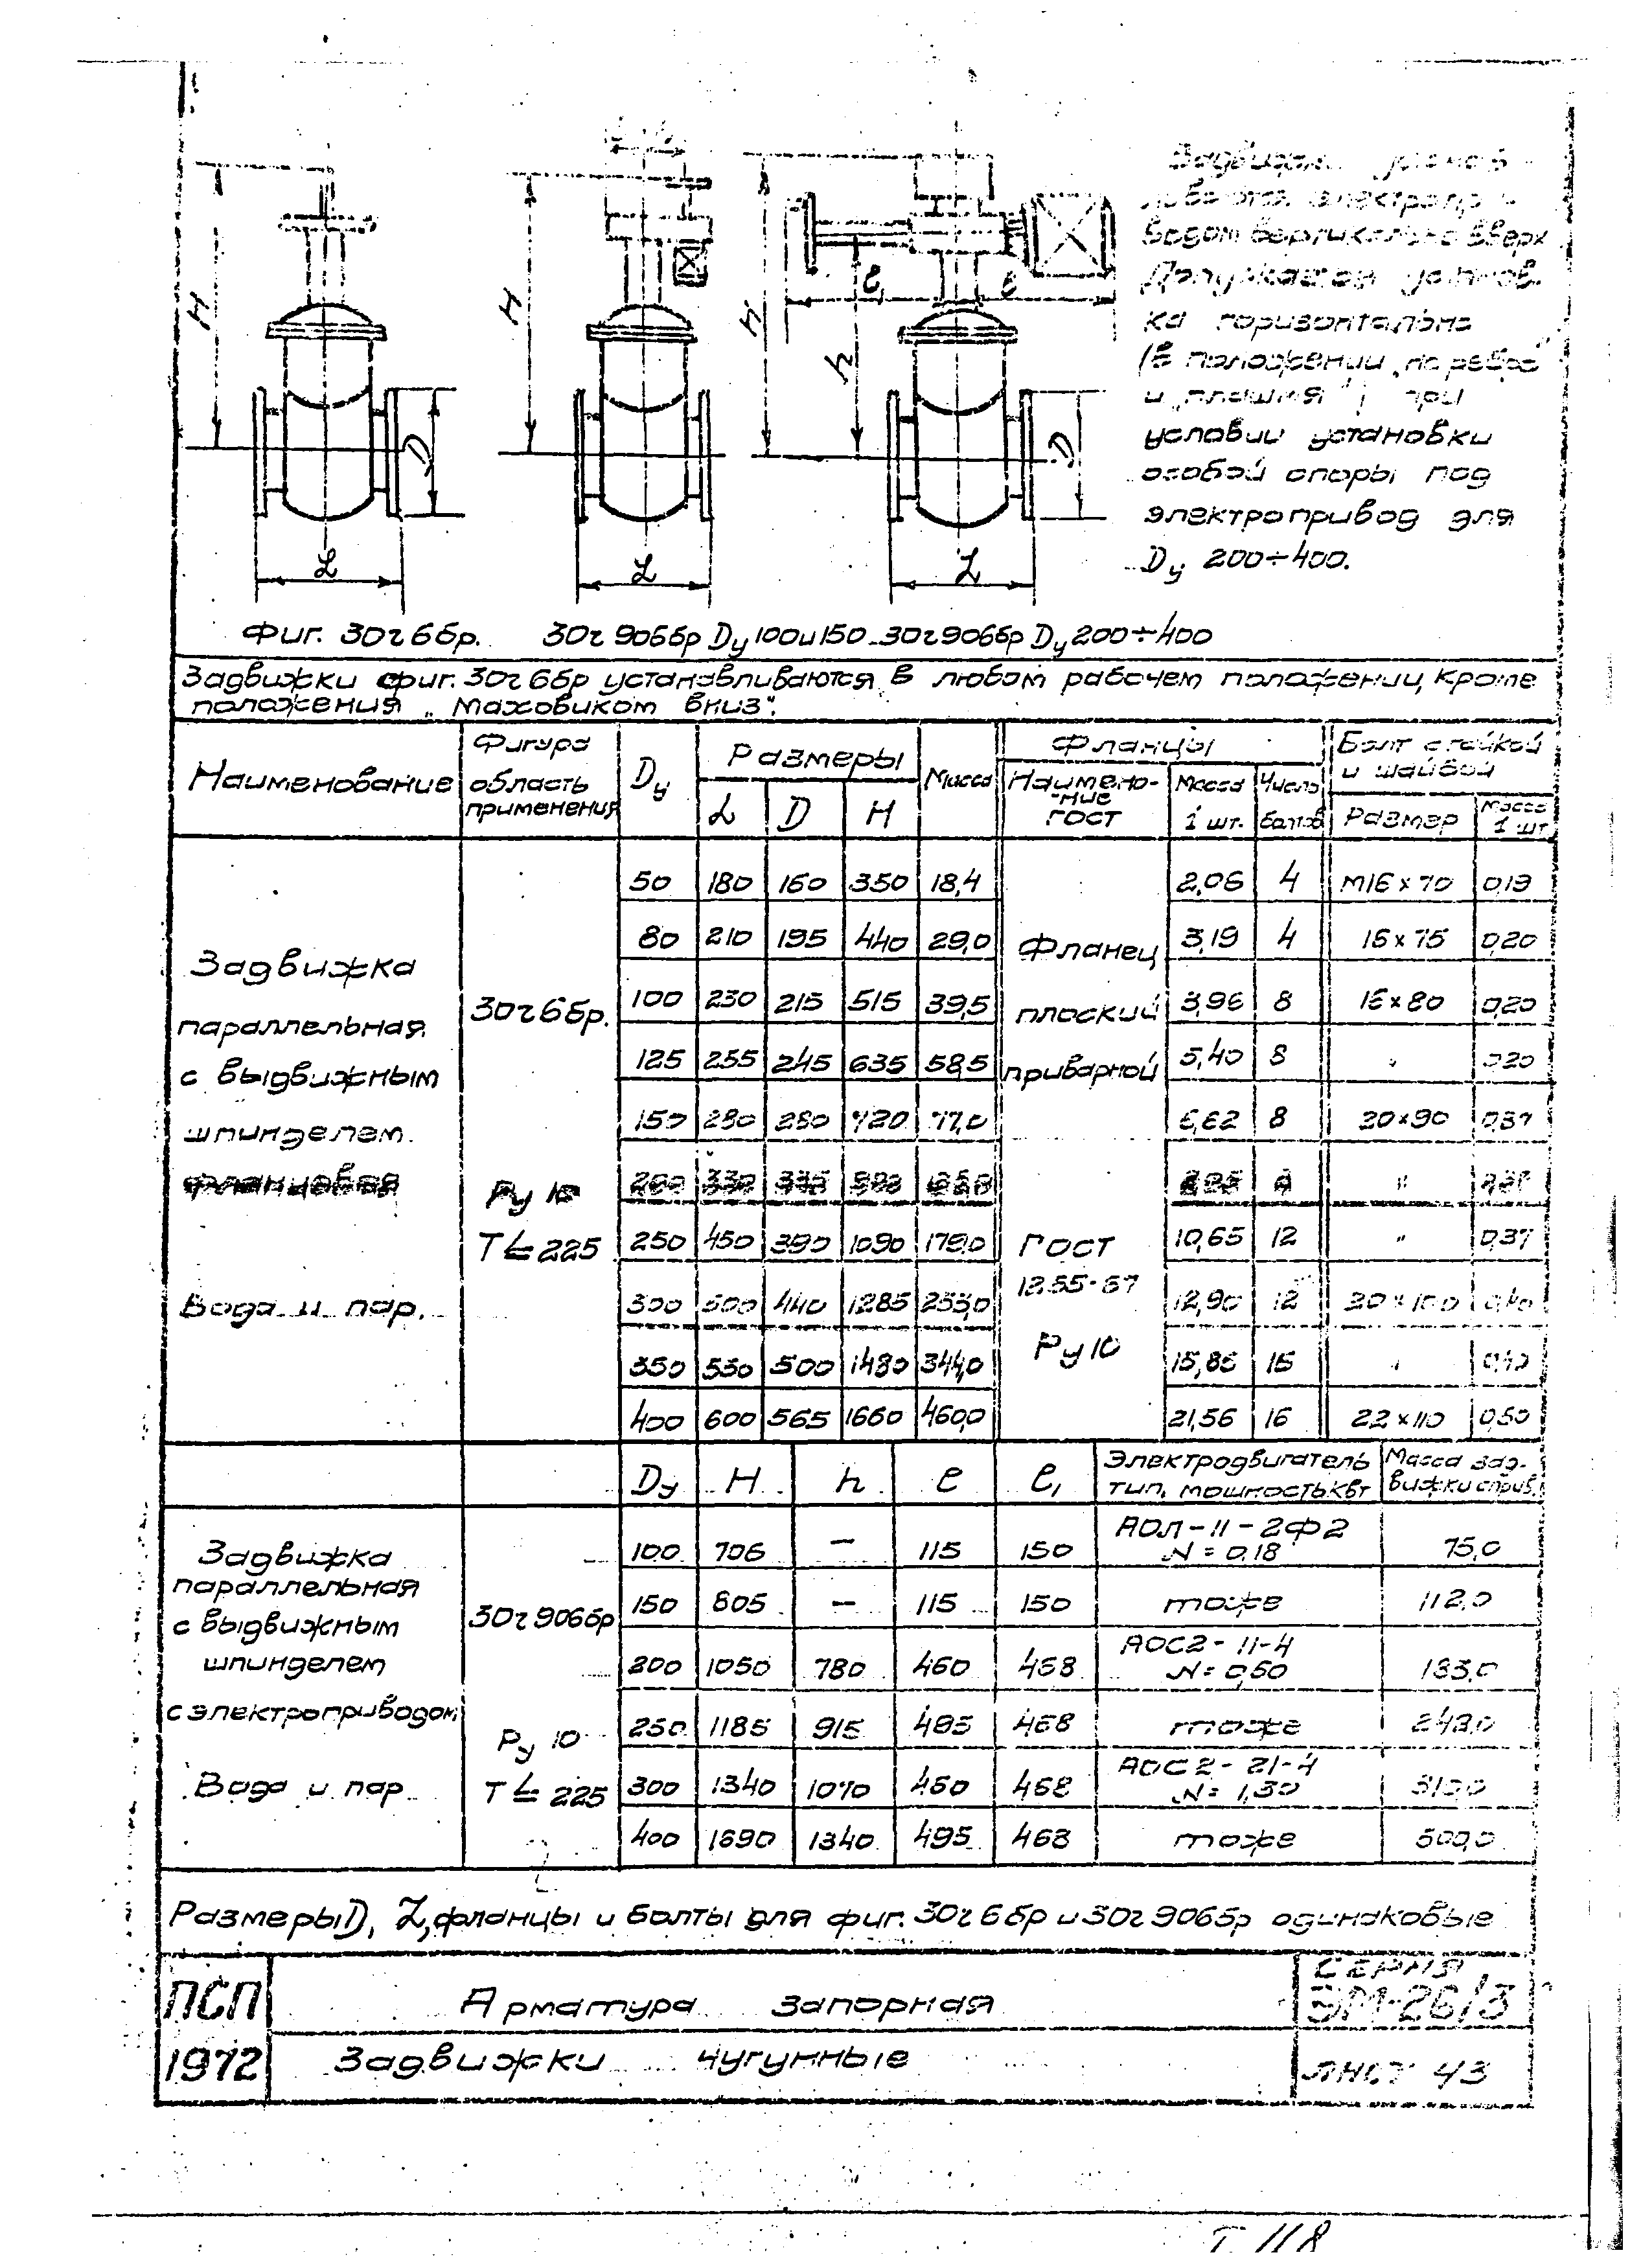 H
H
H
h
ℓ₁
ℓ
D
D
L
L
L
водом вертикально вверх
ка горизонтальна
(в положении „на ребро"
и „плашмя") при
условии установки
особой опоры под
электропривод для
Dу 200÷400.
Фиг. 30ч6бр. 30ч906бр Dу 100 и 150 30ч906бр Dу 200÷400
Задвижки фиг. 30ч6бр устанавливаются в любом рабочем положении, кроме
положения „маховиком вниз".
Наименование Фигура область применения Dу Размеры Масса Фланцы Болт с гайкой и шайбой
L D H Наимено-ние ГОСТ Масса 1 шт. Число болтов Размер Масса 1 шт.
50 180 160 350 18,4 2,06 4 М16×70 0,19
80 210 195 440 29,0 3,19 4 16×75 0,20
100 230 215 515 39,5 3,96 8 16×80 0,20
125 255 245 635 58,5 5,40 8 „ 0,20
150 280 280 720 77,0 6,62 8 20×90 0,37
250 450 390 1090 179,0 10,65 12 „ 0,37
300 500 440 1285 253,0 12,90 12 20×100 0,40
350 550 500 1480 344,0 15,85 16 „
400 600 565 1660 460,0 21,56 16 22×110 0,50
Задвижка
параллельная
с выдвижным
шпинделем
фланцовая
Вода и пар.
30ч6бр.
Ру 10
T ≤ 225
Фланец
плоский
приварной
ГОСТ
1255-67
Ру 10
Dу H h ℓ ℓ₁ Электродвигатель тип, мощность кВт Масса зад-вижки с прив.
100 706 — 115 150 АОЛ-11-2Ф2 N = 0,18 75,0
150 805 — 115 150 тоже 112,0
200 1050 780 460 468 АОС2-11-4 N = 0,60
250 1185 915 495 468 тоже
300 1340 1070 460 468 АОС2-21-4 N = 1,30 310,0
400 1690 1340 495 468 тоже 500,0
Задвижка
параллельная
с выдвижным
шпинделем
с электроприводом
Вода и пар
30ч906бр
Ру 10
T ≤ 225
Размеры D, L, фланцы и болты для фиг. 30ч6бр и 30ч906бр одинаковые
ПСП
1972
Арматура запорная
Задвижки чугунные
СЕРИЯ
ЭМ-26/3
ЛИСТ 43
Т. 118